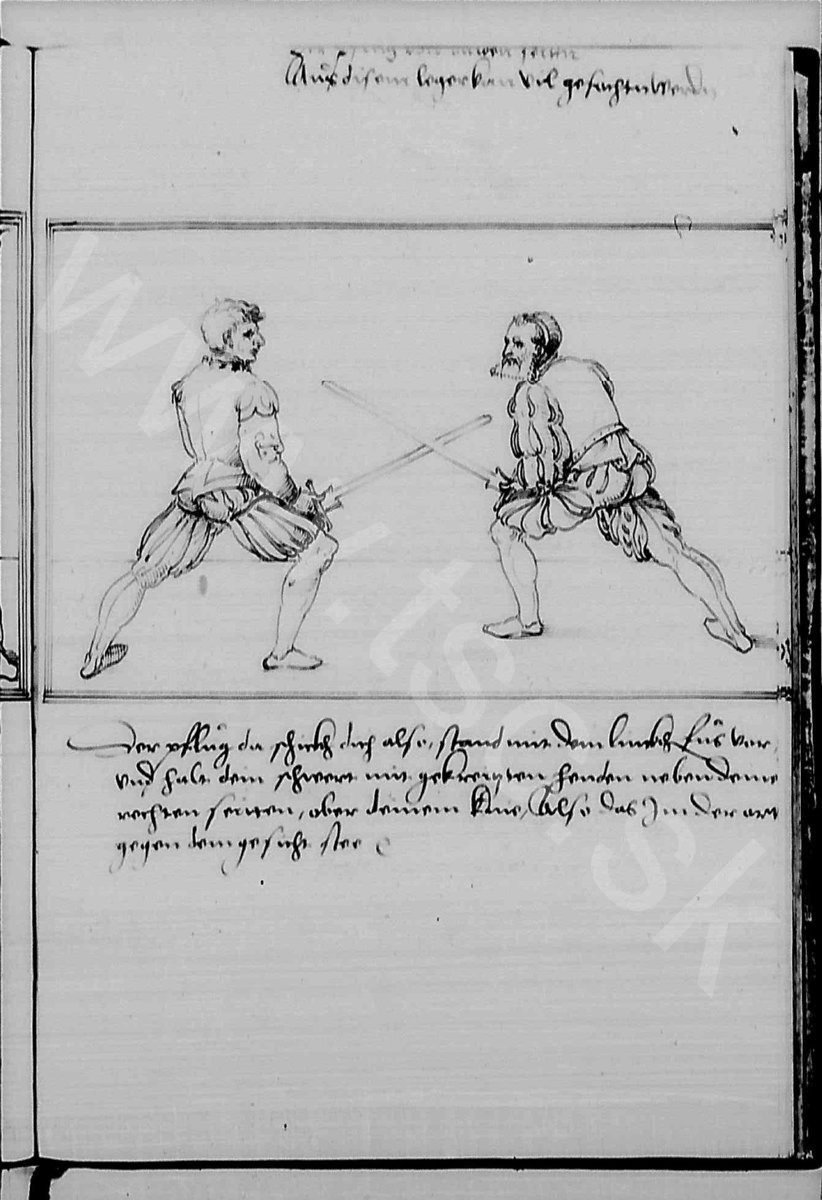 von baiden seitten
Aus disem leger kan vil gefochtn werdn
Der pflůg da schickh dich also, stand mit dem linckh fůs vor,
vnd halt dein schwert mit gekreitzten henden neben deine
rechten seitten, ober deinem knie, Also das Im der ort
gegen dem gesicht stee
www.tsc.sk